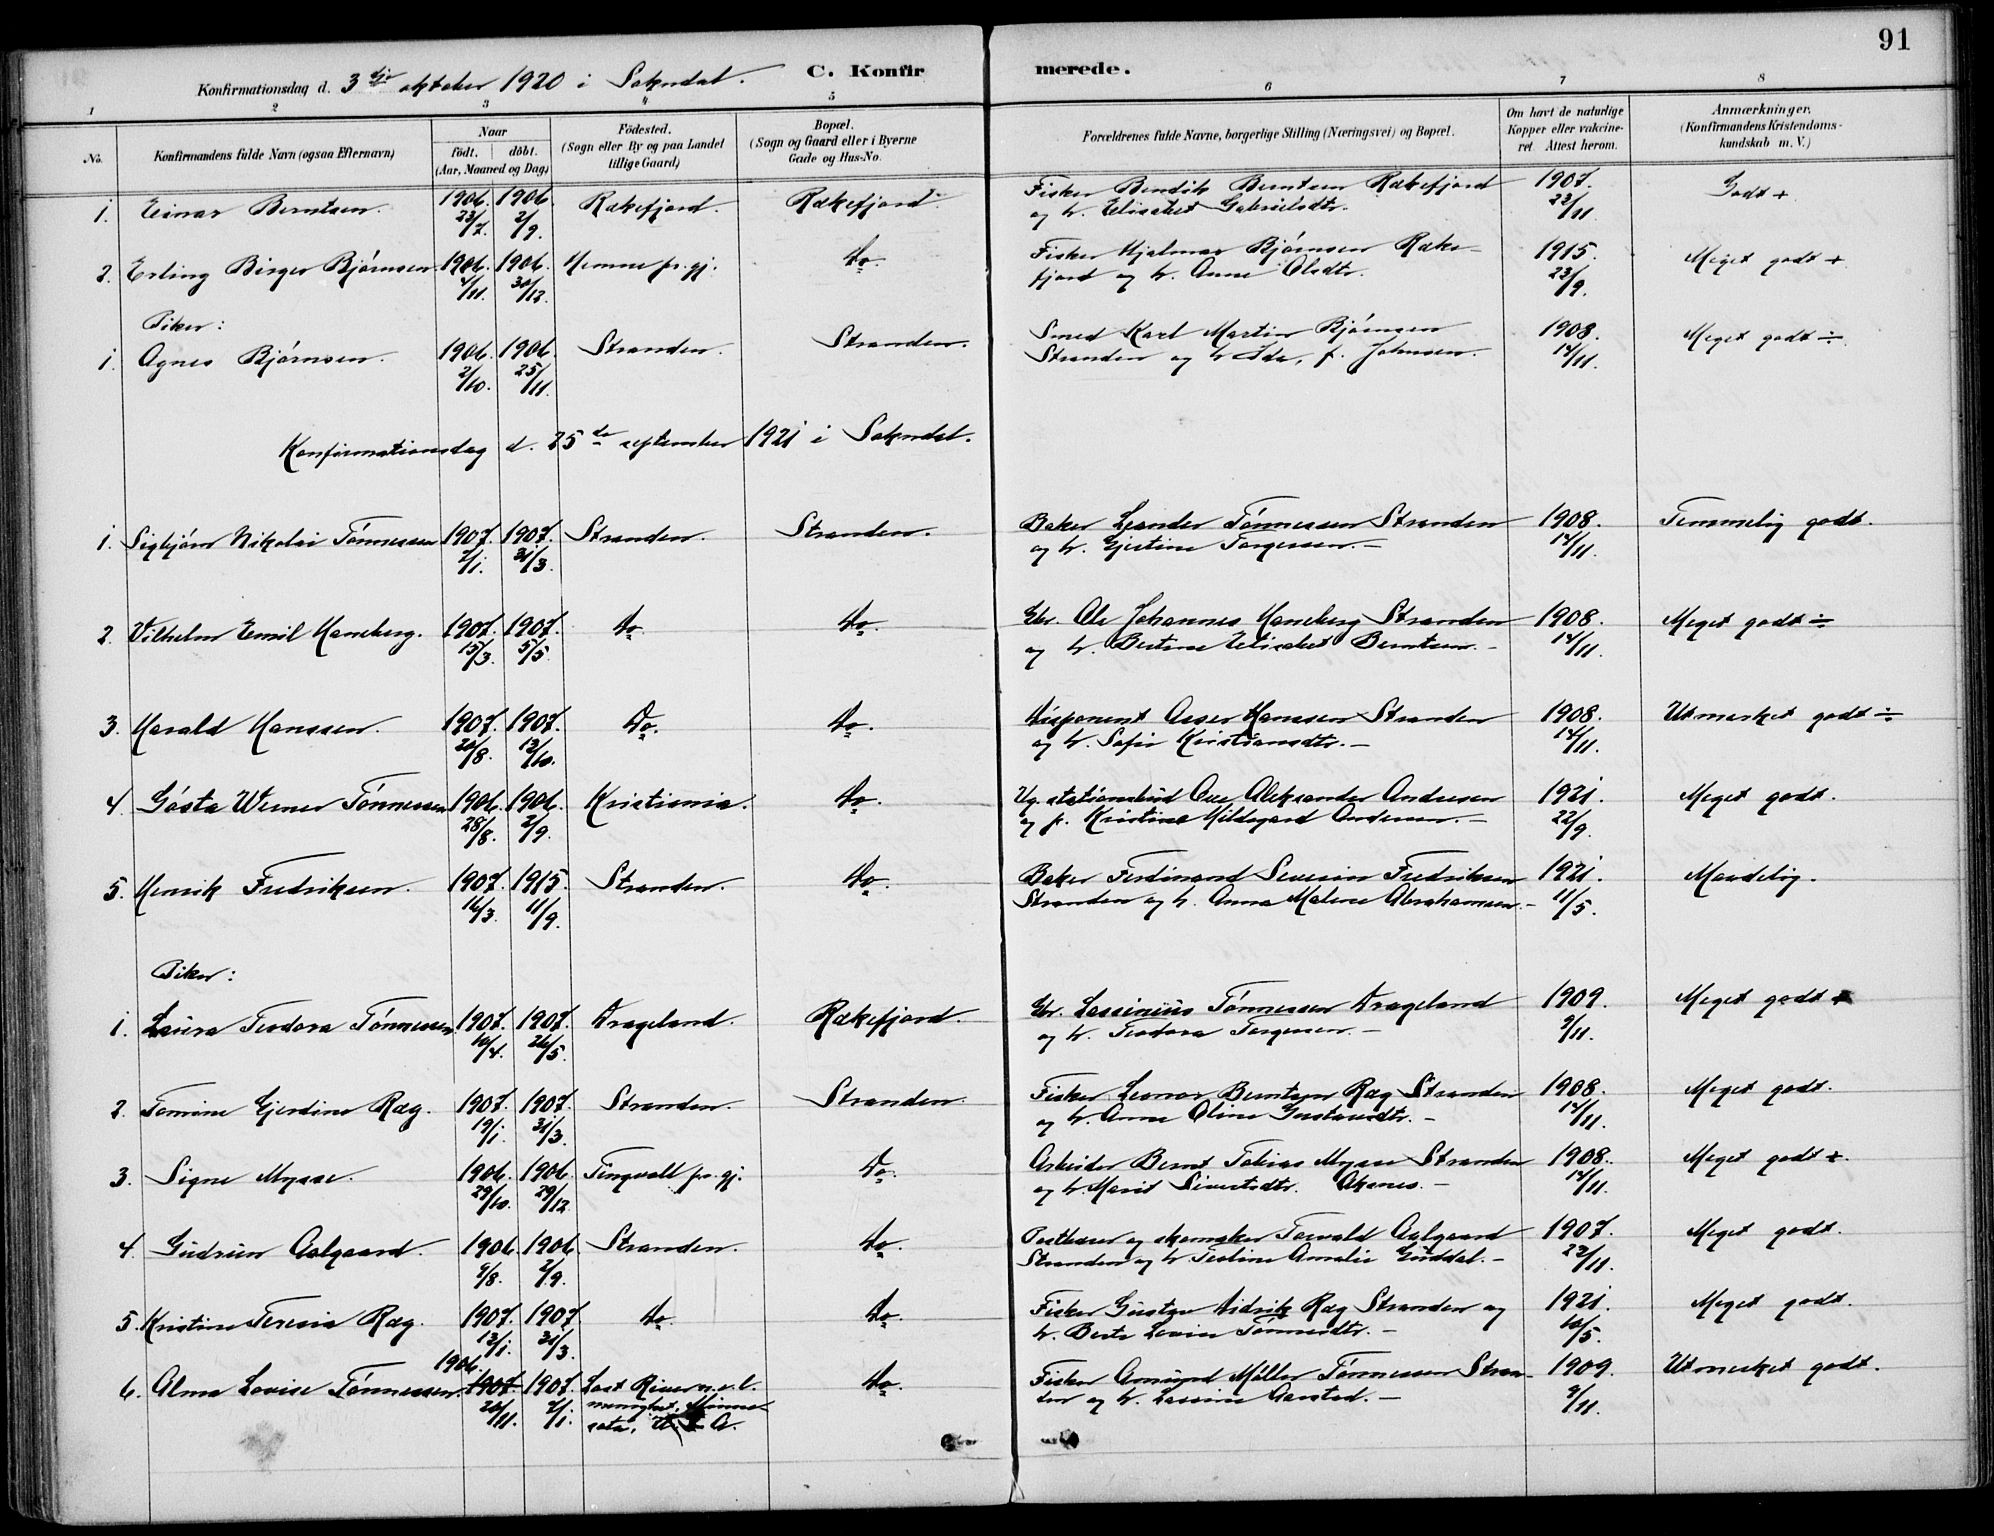 91
Konfirmationsdag d. 3die oktober 1920 i Sokndal. C. Konfirmerede.
1 2 3 4 5 6 7 8
No. Konfirmandens fulde Navn (ogsaa Efternavn) Naar födt. döbt. (Aar, Maaned og Dag) Födested. (Sogn eller By og paa Landet tillige Gaard) Bopæl. (Sogn og Gaard eller i Byerne Gade og Hus-No. Forældrenes fulde Navne, borgerlige Stilling (Næringsvei) og Bopæl. Om havt de naturlige Kopper eller vakcineret. Attest herom. Anmærkninger. (Konfirmandens Kristendomskundskab m. V.)
1. Einar Berntsen. 1906. 23/7. 1906. 2/9. Rækefjord. Rækefjord. Fisker Bendik Berntsen Rækefjord 1907. Godt +
og h. Elisabet Gabrielsdtr. 22/11.
2. Erling Birger Bjørnsen 1906. 4/11. 1906. 30/12. Hemne pr.gj. Do. Fisker Hjalmar Bjørnsen Ræke- 1915. Meget godt +
fjord og h. Anne Olsdtr. 23/9.
Piker:
1. Agnes Bjørnsen. 1906. 2/10. 1906. 25/11. Stranden. Stranden. Smed Karl Martin Bjørnsen 1908. Meget godt ÷
Stranden og h. Ida, f. Johnsen. 14/11.
Konfirmationsdag d. 25de september 1921 i Sokndal.
1. Sigbjørn Nikolai Tønnessen 1907. 2/1. 1907. 31/3. Stranden. Stranden. Baker Leander Tønnessen Stranden 1908. Temmelig godt.
og h. Gjertine Torgersen. - 14/11.
2. Vilhelm Emil Haneberg. 1907. 15/3. 1907. 5/5. Do. Do. Gbr. Ole Johannes Haneberg Stranden 1908. Meget godt ÷
og h. Bertine Elisabet Berntsen. - 14/11.
3. Harald Hanssen. 1907. 20/8. 1907. 13/10. Do. Do. Disponent Asser Hanssen Stranden 1908. Utmerket godt ÷
og h. Sofie Kristiansdtr. - 14/11.
4. Gösta Werner Tønnessen 1906. 28/8. 1906. 2/9. Kristiania. Do. Ug. stationsbud Ove Aleksander Andresen 1921. Meget godt.
og p. Kristine Hildegard Andersen. - 22/9.
5. Henrik Fredriksen. 1907. 16/3. 1915. 11/9. Stranden. Do. Baker Ferdinand Severin Fredriksen 1921. Maadelig.
Stranden og h. Anna Malene Abrahamsen. - 11/5.
Piker:
1. Laura Teodora Tønnessen. 1907. 10/4. 1907. 26/5. Drageland. Rækefjord. Gbr. Lassinius Tønnessen Drageland 1909. Meget godt +
og h. Teodora Torgersen. - 9/11.
2. Tomine Gjerdine Ræg. 1907. 19/1. 1907. 31/3. Stranden. Stranden. Fisker Leonar Berntsen Ræg Stranden 1908. Meget godt.
og h. Anne Oline Gustavsdtr. - 14/11.
3. Signe Mysse. 1906. 29/10. 1906. 29/12. Tingvoll pr.gj. Do. Arbeider Bernt Tobias Mysse Stranden 1908. Meget godt +.
og h. Marit Sivertsdtr. Akanes. - 14/11.
4. Gudrun Aalgaard. 1906. 9/8. 1906. 2/9. Stranden. Do. Postbærer og skomaker Torvald Aalgaard 1907. Meget godt.
Stranden og h. Teoline Amalie Guddal. - 22/11.
5. Kristine Teresia Ræg. 1907. 12/1. 1907. 31/3. Do. Do. Fisker Gustav Didrik Ræg Stranden og 1921. Meget godt.
h. Berte Lovise Tønnesdtr. - 10/5.
6. Alma Lovise Tønnessen. 1906. 1907. 20/11. 1907. 2/1. East River n.e.l. Do. Fisker Amund Møller Tønnessen Stran- 1909. Utmerket godt.
menighet, Minne- den og h. Lassine Aarstad. - 9/11.
sota, U.S.A.